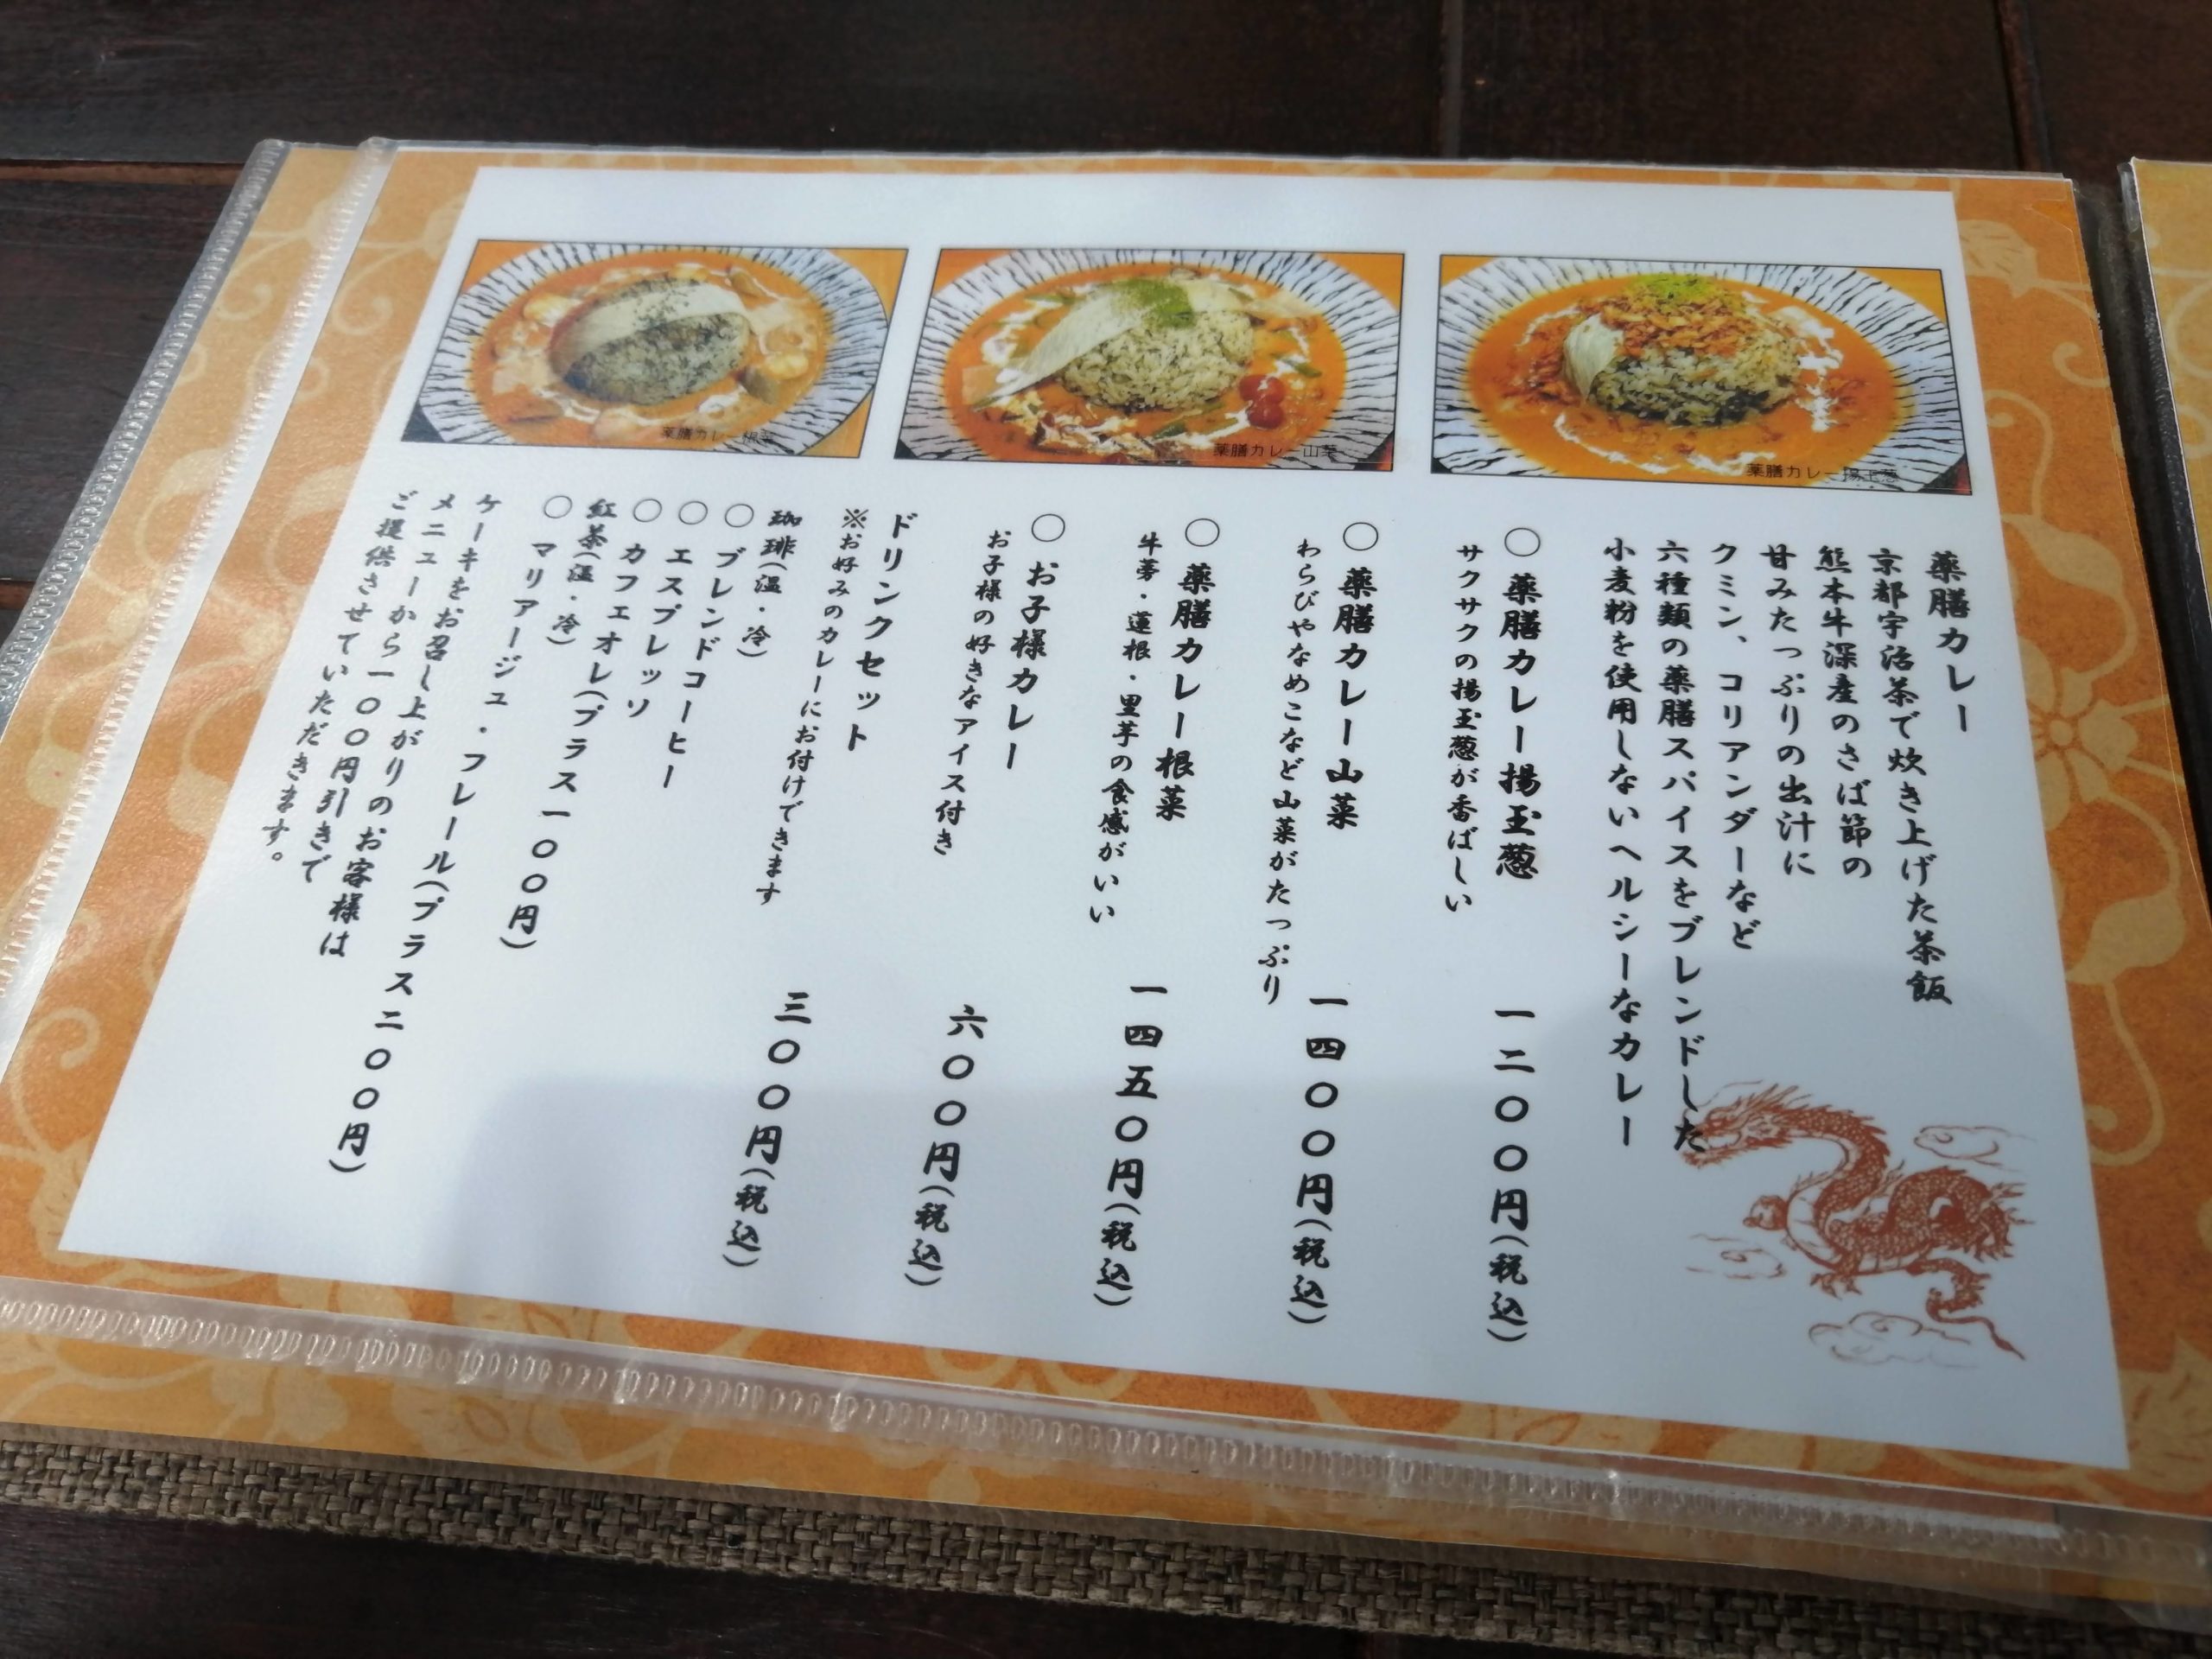 薬膳カレー
京都宇治茶で炊き上げた茶飯
熊本牛深産のさば節の
甘みたっぷりの出汁に
クミン、コリアンダーなど
六種類の薬膳スパイスをブレンドした
小麦粉を使用しないヘルシーなカレー
○ 薬膳カレー揚玉葱 一二〇〇円(税込)
サクサクの揚玉葱が香ばしい
○ 薬膳カレー山菜 一四〇〇円(税込)
わらびやなめこなど山菜がたっぷり
○ 薬膳カレー根菜 一四五〇円(税込)
牛蒡・蓮根・里芋の食感がいい
○ お子様カレー 六〇〇円(税込)
お子様の好きなアイス付き
ドリンクセット 三〇〇円(税込)
※お好みのカレーにお付けできます
珈琲(温・冷)
○ ブレンドコーヒー
○ エスプレッソ
○ カフェオレ(プラス一〇〇円)
紅茶(温・冷)
○ マリアージュ・フレール(プラス二〇〇円)
ケーキをお召し上がりのお客様は
メニューから一〇〇円引きで
ご提供させていただきます。
薬膳カレー揚玉葱
薬膳カレー山菜
薬膳カレー根菜